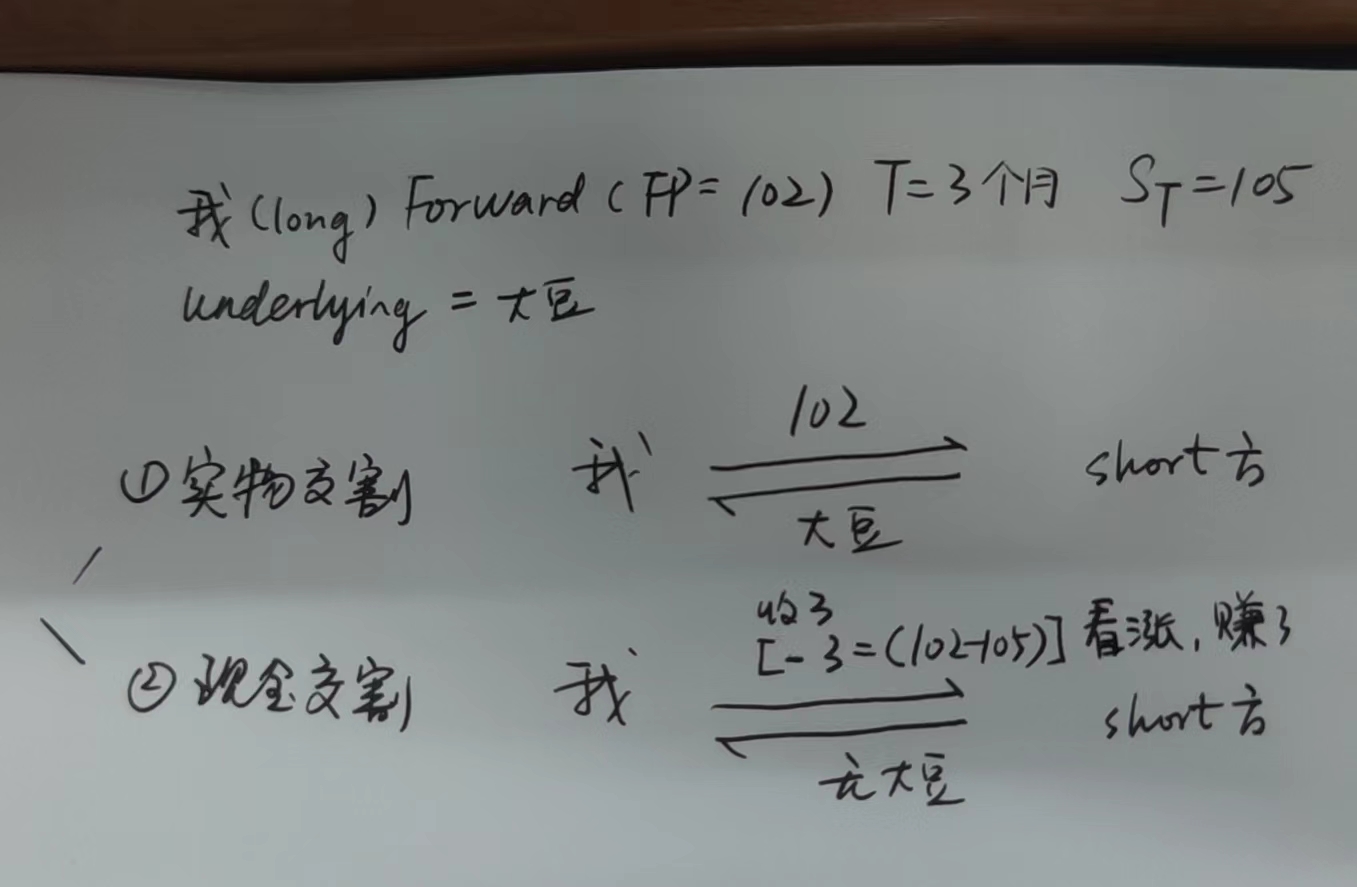 我(long) Forward (FP=102) T=3个月 S_T=105
underlying = 大豆
102
①实物交割 我 short方
大豆
收3
[-3=(102-105)] 看涨,赚3
②现金交割 我 short方
无大豆